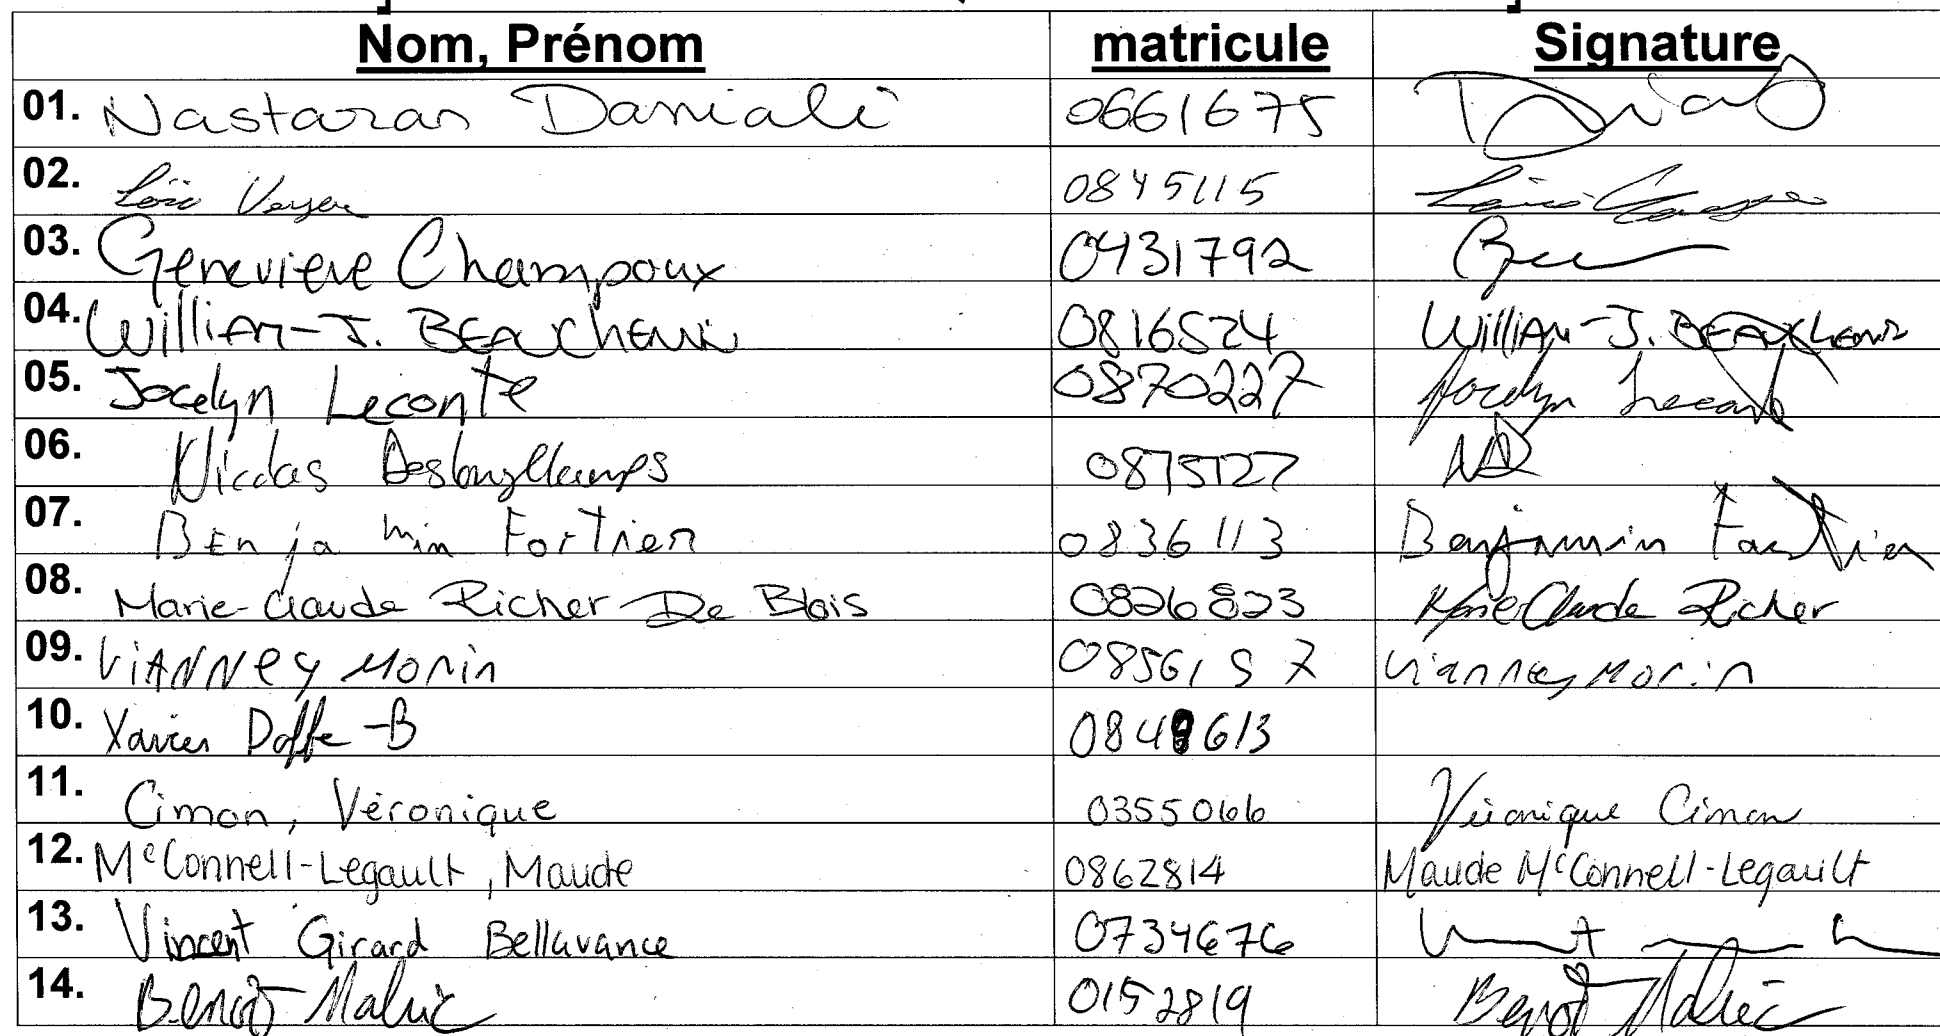 Nom, Prénom matricule Signature
01. Nastaran Daniali 0661675
02. Loïc 0845115
03. Geneviève Champoux 0431792
04. William-J. BEAUchemin 0816524 William-J. BEAUchemin
05. Jocelyn Leconte 0870227 Jocelyn Leconte
06. Nicolas Deslongchamps 0875727 ND
07. BEnjamin Fortier 0836113 Benjamin Fortier
08. Marie-Claude Richer De Blois 0826823 Marie-Claude Richer
09. ViANNey Morin 0856197 Vianney Morin
10. Xavier -B 0848613
11. Cimon, Véronique 0355066 Véronique Cimon
12. McConnell-Legault, Maude 0862814 Maude McConnell-Legault
13. Vincent Girard Bellavance 0734676
14. Benoît 0152819 Benoît